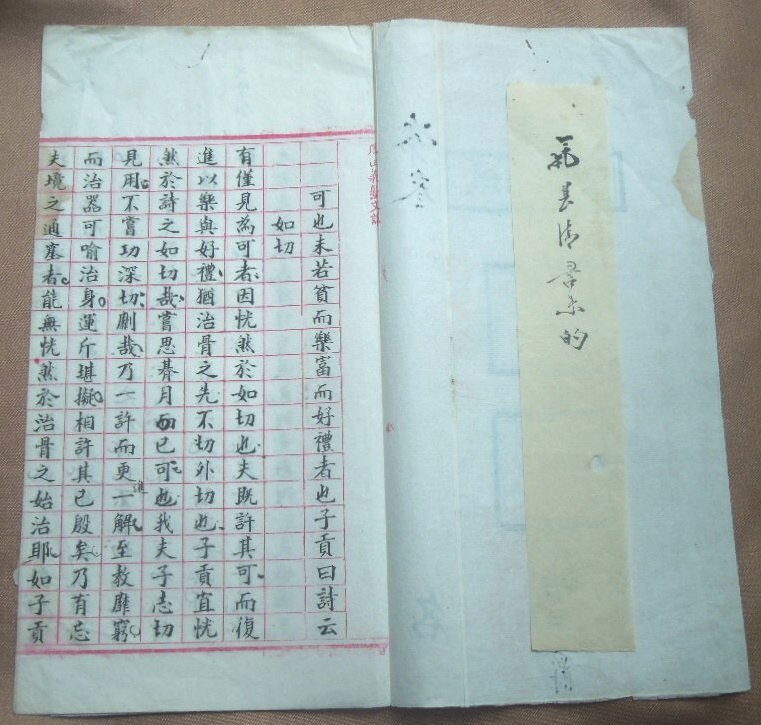 可也未若貧而樂富而好禮者也子貢曰詩云
如切
有僅見為可者因恍然於如切也夫既許其可而復
進以樂與好禮猶治骨之先不切外切也子貢宜恍
然於詩之如切哉嘗思朞月而已可也我夫子志切
見用不嘗功深切劘哉乃一許而更進一解至教靡窮
而治器可喻治身運斤堪擬相許其已殷矣乃有忘
夫境之通塞者能無恍然於治骨之始治耶如子貢